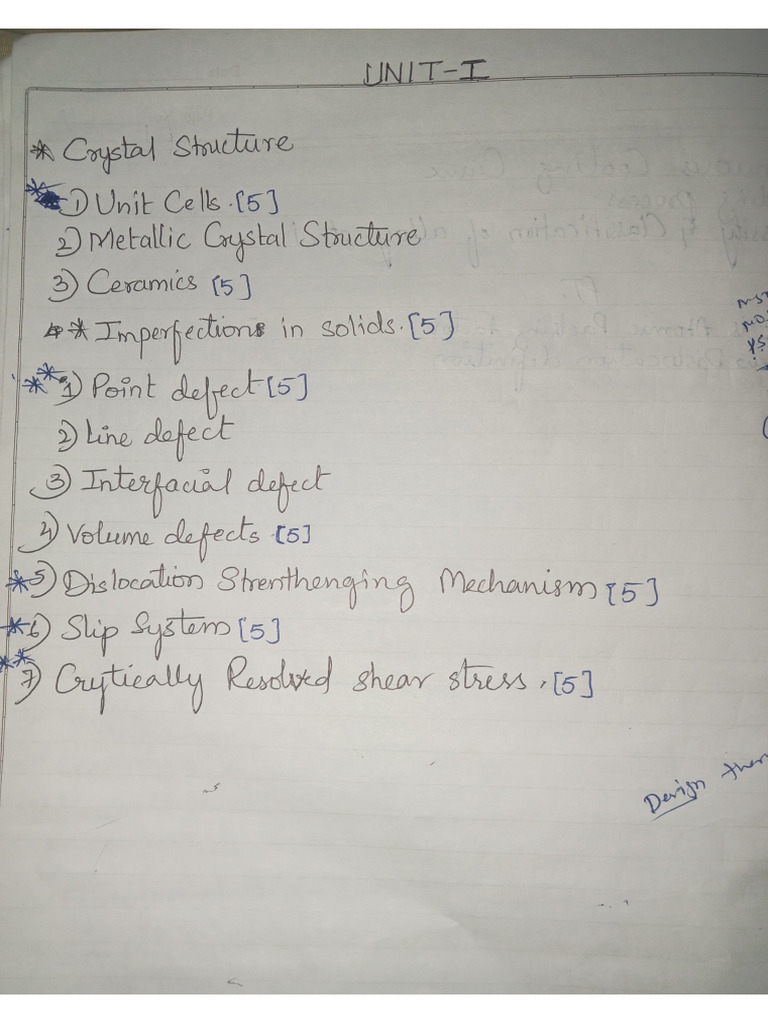 UNIT-I
* Crystal Structure
* 1) Unit Cells. [5]
2) Metallic Crystal Structure
3) Ceramics [5]
* Imperfections in solids. [5]
** 1) Point defect [5]
2) Line defect
3) Interfacial defect
4) Volume defects. [5]
* 5) Dislocation Strenthenging Mechanism [5]
* 6) Slip System [5]
** 7) Crytically Resolved shear stress. [5]
Design